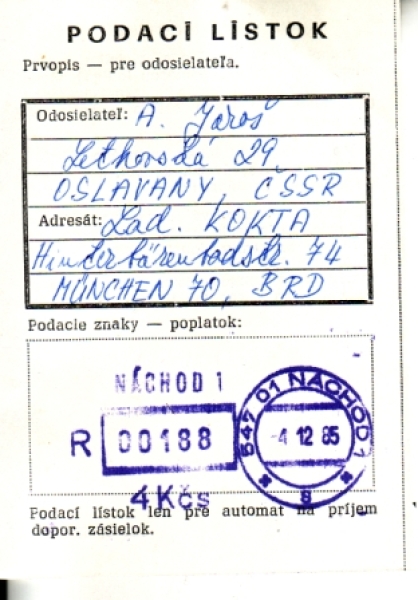 PODACÍ LÍSTOK
Prvopis — pre odosielateľa.
Odosielateľ: A. Jaroš
29
OSLAVANY, ČSSR
Adresát: Lad. KOKTA
Hinterbärenbadstr. 74
MÜNCHEN 70, BRD
Podacie znaky — poplatok:
NÁCHOD 1
R 00188
4 Kčs
547 01 NÁCHOD 1
-4 12 85
Podací lístok len pre automat na príjem
dopor. zásielok.